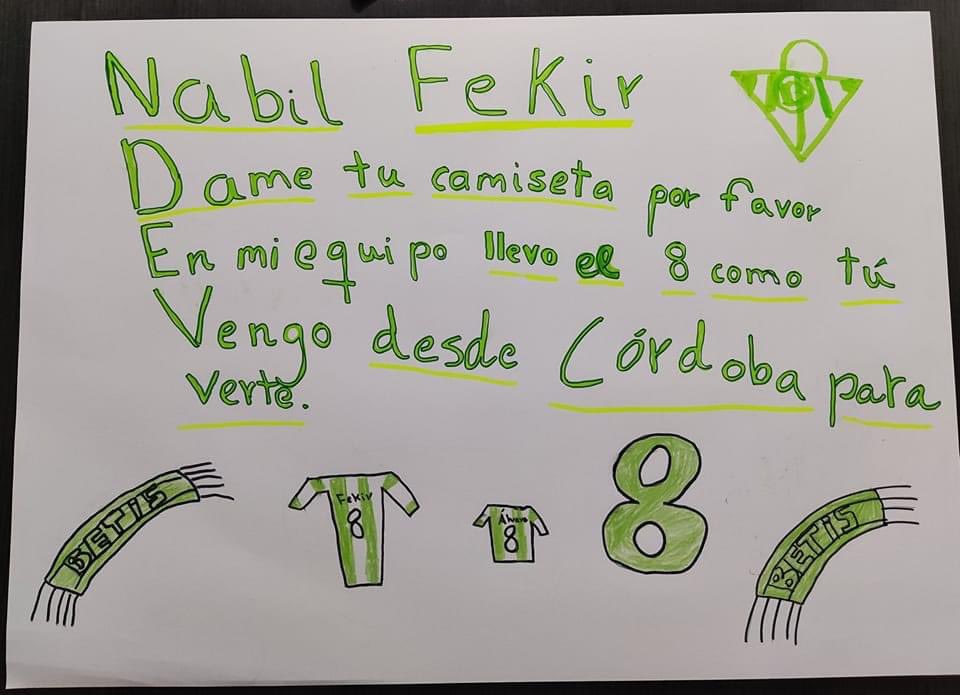 Nabil Fekir
Dame tu camiseta por favor
En mi equipo llevo el 8 como tú
Vengo desde Córdoba para
verte.
BETIS
Fekir
8
Álvaro
8
8
BETIS